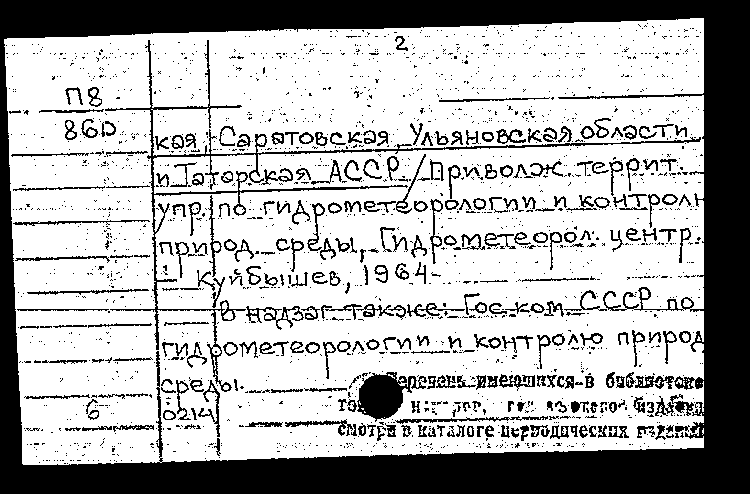 2
П8
86D
кая, Саратовская, Ульяновская области
и Татарская АССР / Приволж. террит.
упр. по гидрометеорологии и контролю
природ. среды, Гидрометеорол. центр.
Куйбышев, 1964-
В надзаг. также: Гос. ком. СССР по
гидрометеорологии и контролю природ
среды.
Перечень имеющихся в библиотеке
6
0214
смотри в каталоге периодических изданий